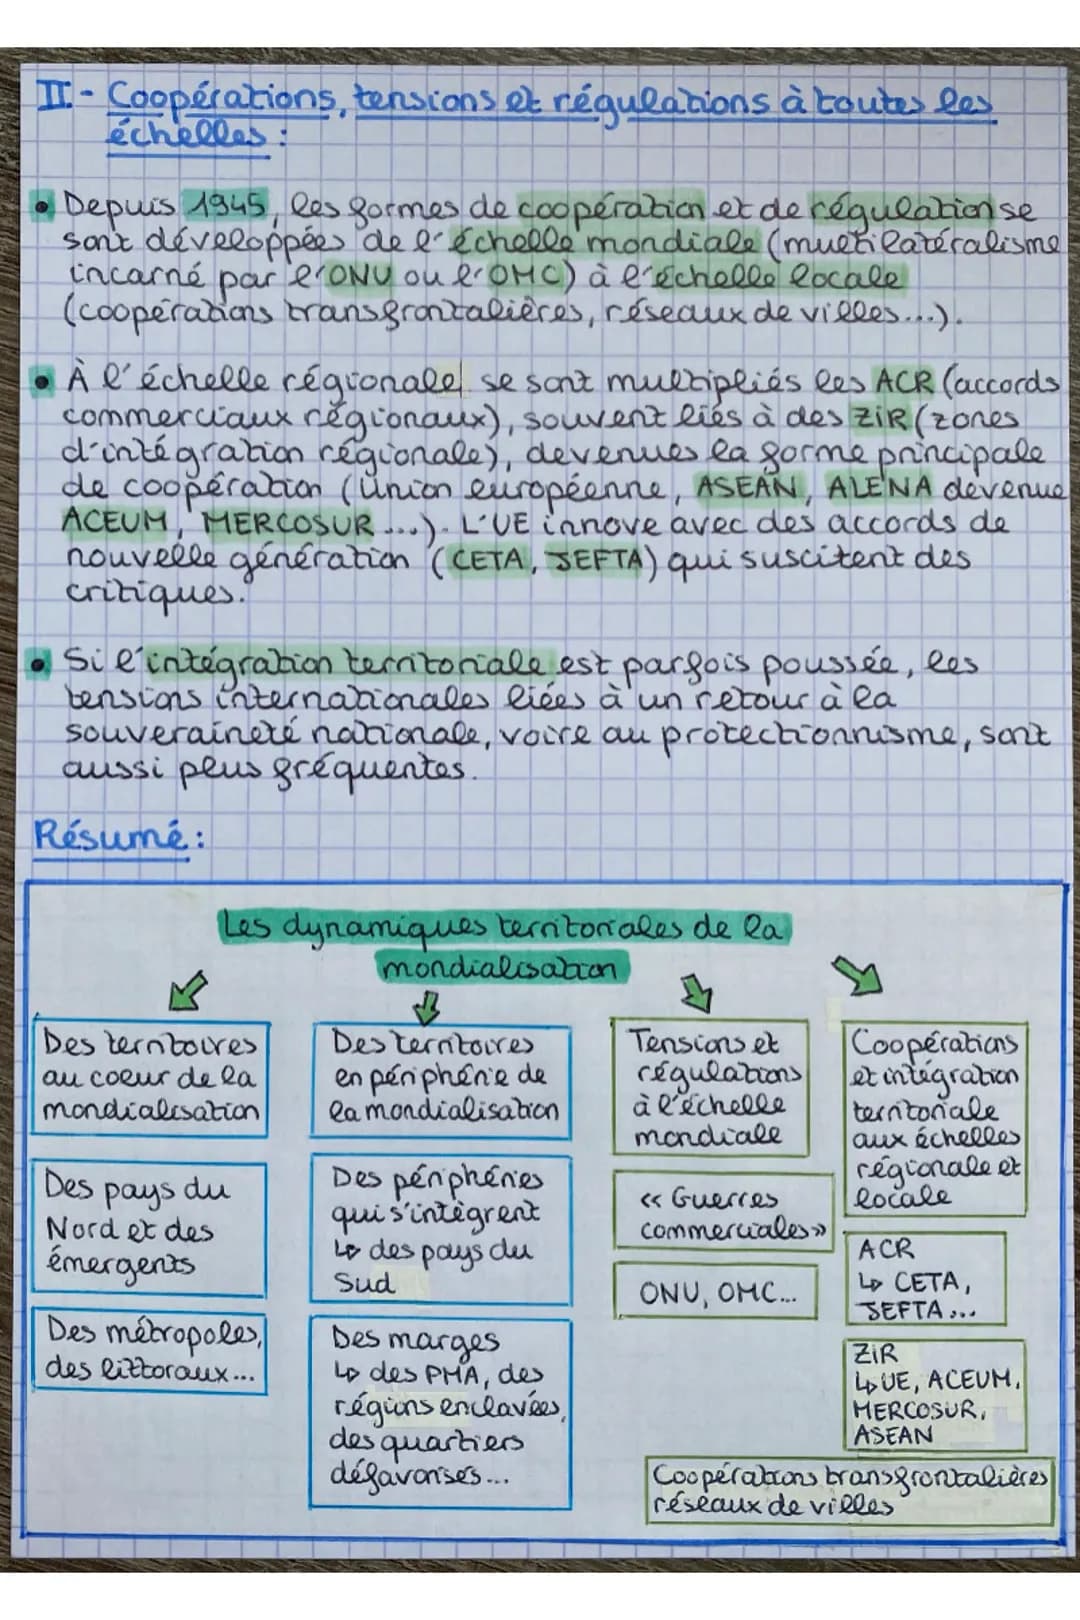 II.- Coopérations, tensions et régulations à toutes les
échelles :
• Depuis 1945, les formes de coopération et de régulation se
sont développées de l'échelle mondiale (multilatéralisme
incarné par l'ONU ou l'OMC) à l'échelle locale
(coopérations transfrontalières, réseaux de villes...).
• À l'échelle régionale se sont multipliés les ACR (accords
commerciaux régionaux), souvent liés à des ZIR (zones
d'intégration régionale), devenues la forme principale
de coopération (Union européenne, ASEAN, ALENA devenue
ACEUM, MERCOSUR...). L'UE innove avec des accords de
nouvelle génération (CETA, JEFTA) qui suscitent des
critiques.
• Si l'intégration territoriale est parfois poussée, les
tensions internationales liées à un retour à la
souveraineté nationale, voire au protectionnisme, sont
aussi plus fréquentes.
Résumé :
Les dynamiques territoriales de la
mondialisation
Des territoires
au coeur de la
mondialisation
Des pays du
Nord et des
émergents
Des métropoles,
des littoraux...
Des territoires
en périphérie de
la mondialisation
Des périphéries
qui s'intègrent
↳ des pays du
Sud
Des marges
↳ des PMA, des
régions enclavées,
des quartiers
défavorisés...
Tensions et
régulations
à l'échelle
mondiale
« Guerres
commerciales »
ONU, OMC...
Coopérations
et intégration
territoriale
aux échelles
régionale et
locale
ACR
↳ CETA,
JEFTA...
ZIR
↳ UE, ACEUM,
MERCOSUR,
ASEAN
Coopérations transfrontalières
réseaux de villes